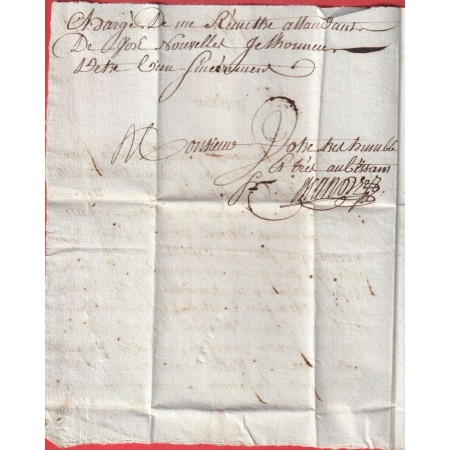 Chargé De me Remettre attandant
De Vos Nouvelles Je L'honneur
Detre Bien Sincerement
Monsieur Votre tres humble
Et tres aubeissans